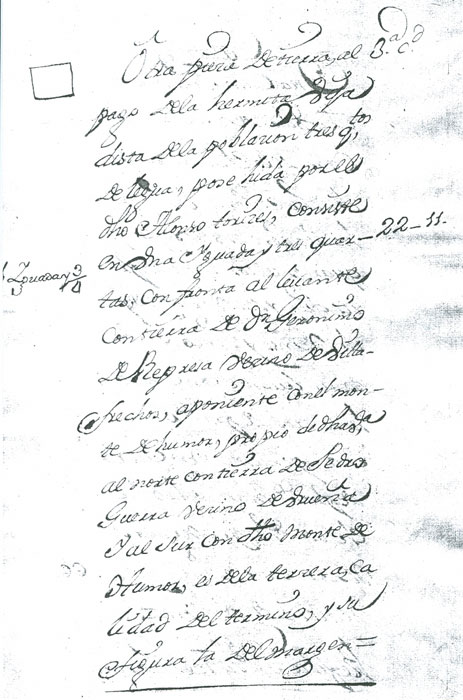 Otra pieza de tierra, al 3.ª c.d
pago de la hermita vieja
dista de la poblazion tres q.tos
de legua, posehida por el
dho Alonso torizes, consiste
en Una Yguada y tres quar - 22 - 11.
1 Yguada y 3/4
tas. Confronta al levante
con tierra de Dn Geronimo
de Represa Vezino de Villa-
frechos, a poniente con el mon-
te de humor, propio de dha
al norte con tierra de Pedro
Guerra Vezino de
Y al Sur con dho Monte de
Humor, es dela terzera, ca
lidad del termino, y su
figura la del margen =